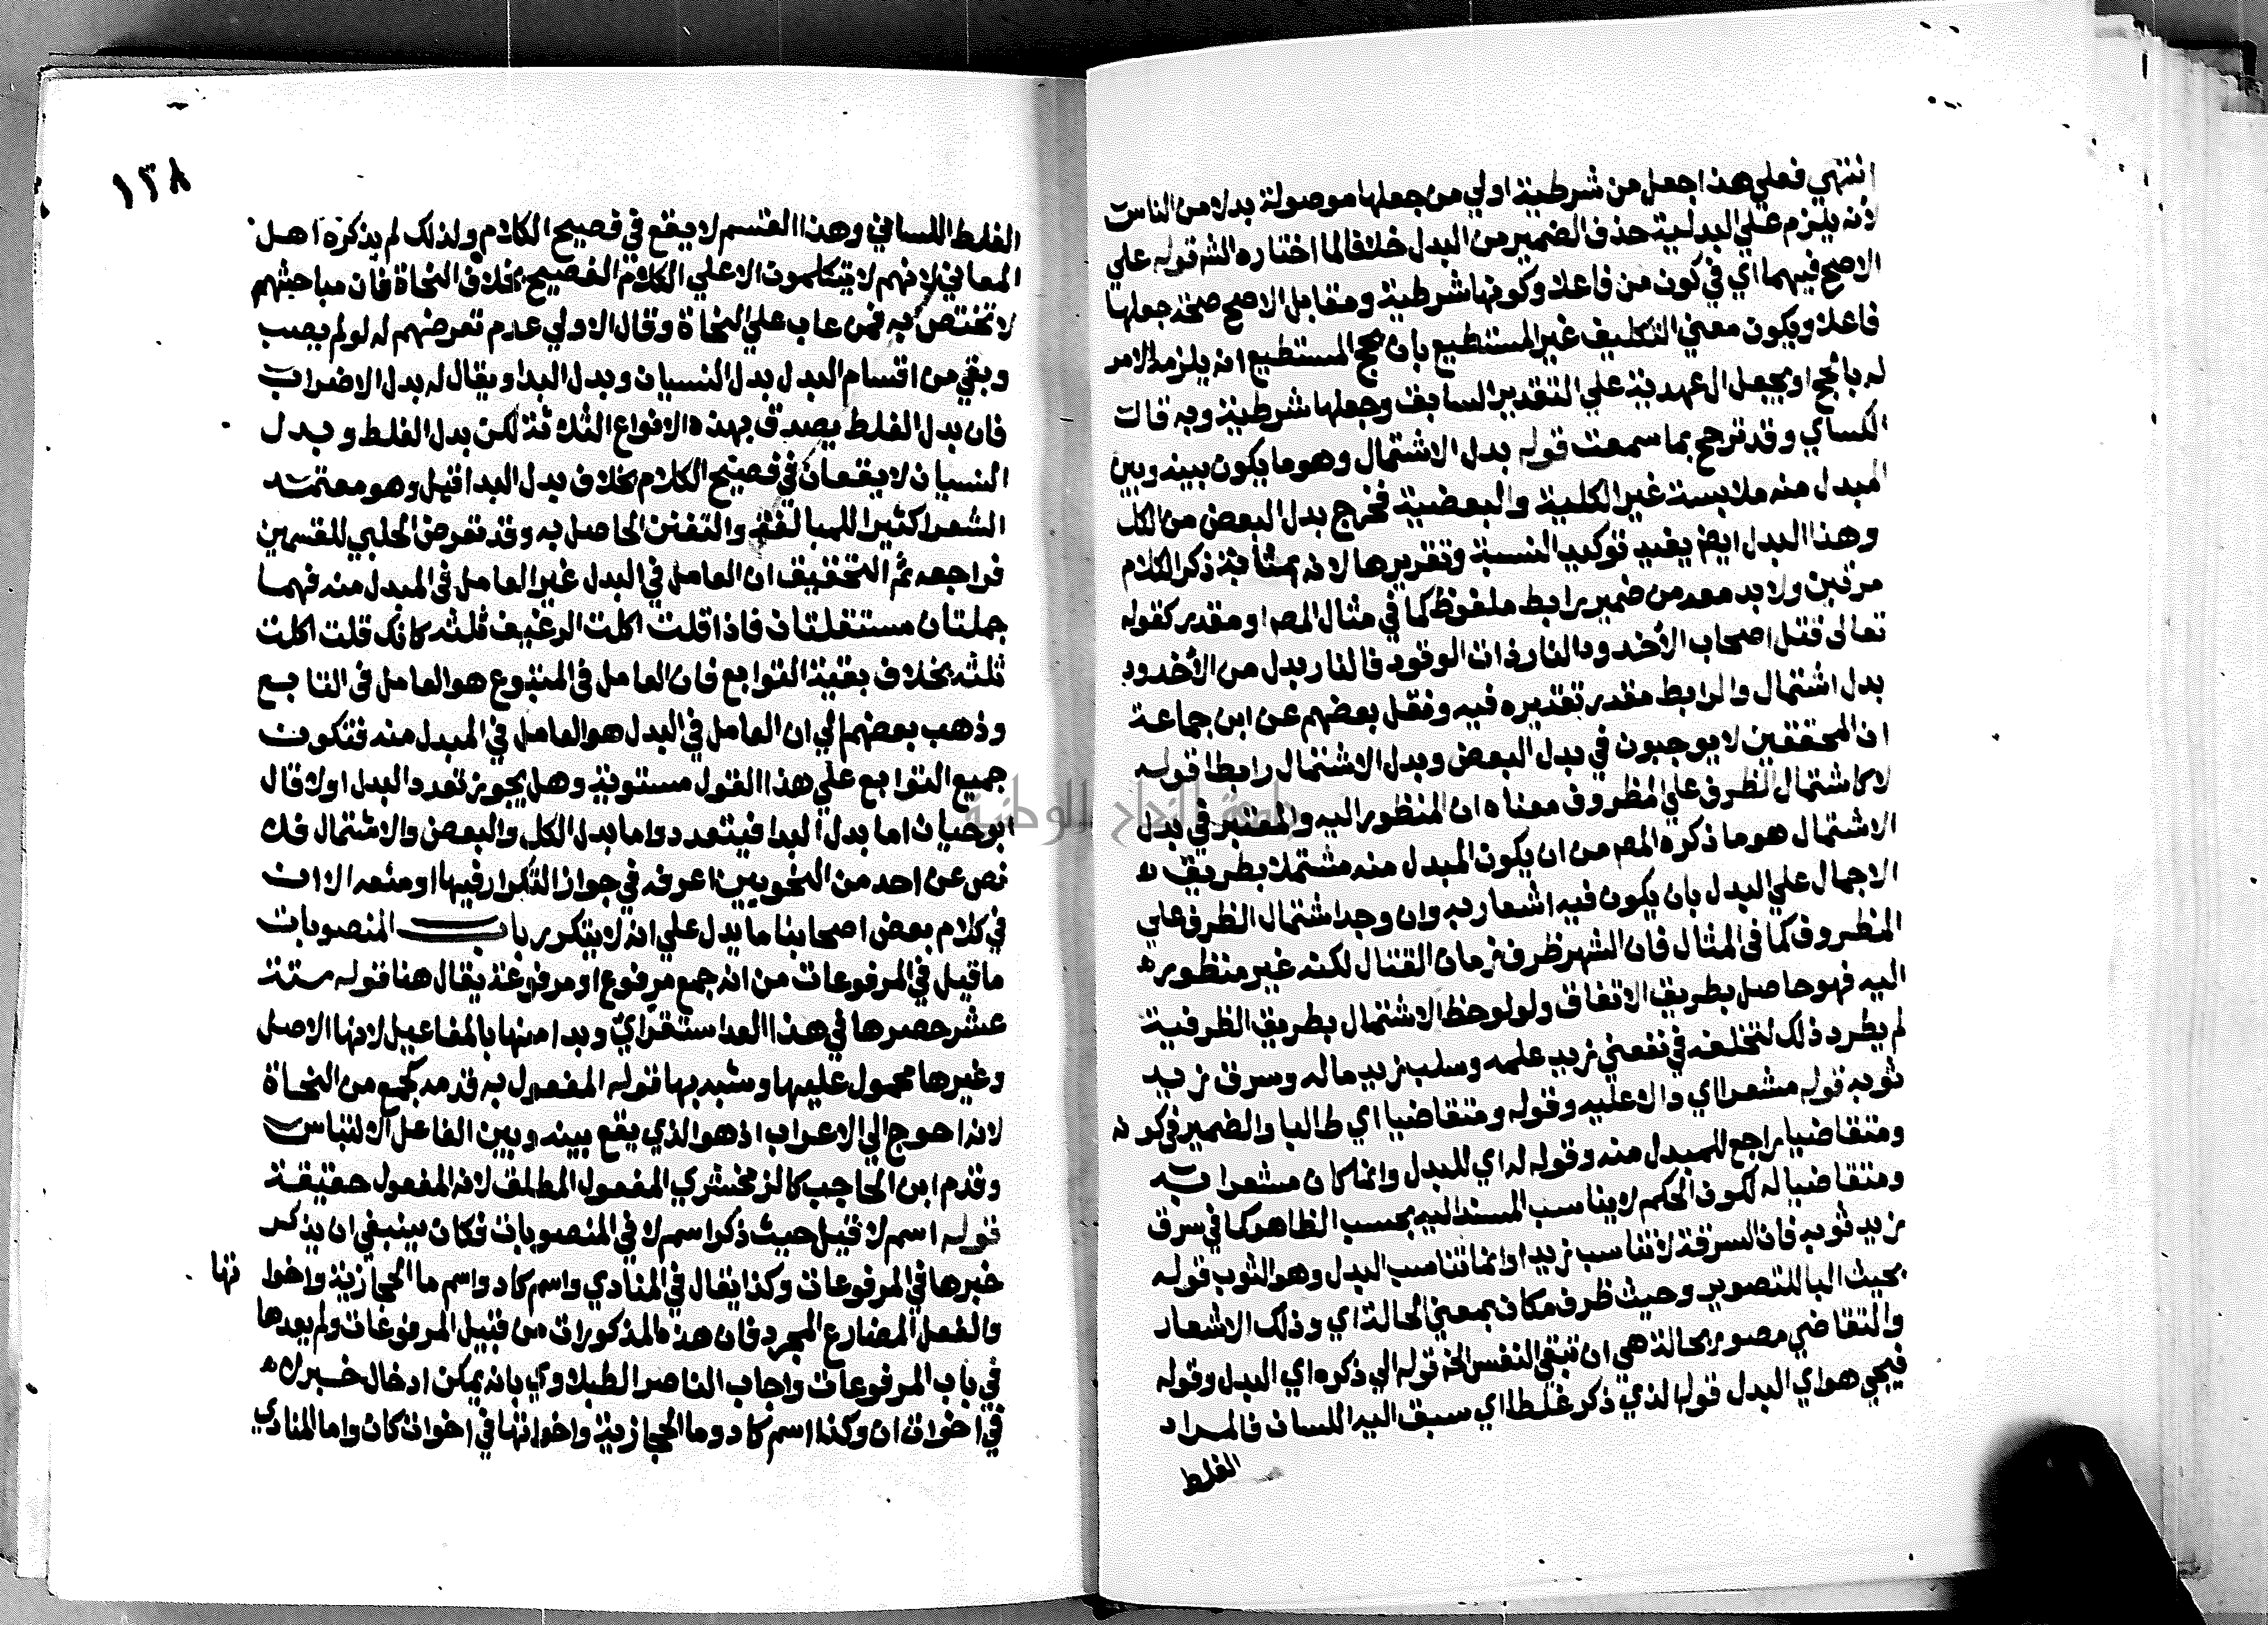 انتهي فعلي هذا جعل من شرطية اولي من جعلها موصولة بدلا من الناس
لانه يلزم علي البدلية حذف الضمير من البدل خلافا لما اختاره الشم قوله علي
الاصح فيهما اي في كون من فاعلا وكونها شرطية ومقابل الاصح صحة جعلها
فاعلا ويكون معني التكليف غير المستطيع بان يحج المستطيع انه يلزمه الامر
له بالحج او بجعل ال عهدية علي التقدير السابق وجعلها شرطية وبه قال
الكساي وقد ترجح بما سمعت قوله بدل الاشتمال وهو ما يكون بينه وبين
المبدل منه ملابسة غير الكلية والبعضية فخرج بدل البعض من الكل
وهذا البدل ايضا يفيد توكيد النسبة وتقريرها لانه بمثابة ذكر الكلام
مرتين ولابد معه من ضمير رابط ملفوظ كما في مثال المص او مقدر كقوله
تعالى قتل اصحاب الأخدود النار ذات الوقود فالنار بدل من الأخدود
بدل اشتمال والرابط مقدر تقديره فيه ونقل بعضهم عن ابن جماعة
ان المحققين لا يوجبون في بدل البعض وبدل الاشتمال رابطا قوله
لا كاشتمال الظرف علي المظروف معناه ان المنظور اليه والمعتبر في بدل
الاشتمال هو ما ذكره المص من ان يكون المبدل منه مشتملا بطريق
الاجمال علي البدل بان يكون فيه اشعار به وان وجد اشتمال الظرف علي
المظروف كما في المثال فان الشهر ظرف زمان القتال لكنه غير منظور
اليه فهو حاصل بطريق الاتفاق ولو لوحظ الاشتمال بطريق الظرفية
لم يطرد ذلك لتخلفه في نفعني زيد علمه وسلب زيد ماله وسرق زيد
ثوبه قوله مشعرا اي دالا عليه وقوله ومتقاضيا اي طالبا والضمير في كونه
ومتقاضيا راجع للمبدل منه وقوله له اي للبدل وانما كان مشعرا به
ومتقاضيا له لكون الحكم لا يناسب المسند اليه بحسب الظاهر كما في سرق
زيد ثوبه فان السرقة لا تناسب زيدا وانما تناسب البدل وهو الثوب قوله
بحيث البا للتصوير وحيث ظرف مكان بمعني الحالة اي وذلك الاشعار
والتقاضي مصور بحالة هي ان تبقي النفس الخ قوله الي ذكره اي البدل وقوله
فيجي هو اي البدل قوله الذي ذكر غلطا اي سبق اليه اللسان فالمراد
الغلط
١٣٨
الغلط اللساني وهذا القسم لا يقع في فصيح الكلام ولذلك لم يذكره اهل
المعاني لانهم لا يتكلمون الا علي الكلام الفصيح بخلاف النحاة فان مباحثهم
لا تختص به فمن عاب علي النحاة وقال الاولي عدم تعرضهم له لو لم يصب
وبقي من اقسام البدل بدل النسيان وبدل البدا ويقال له بدل الاضراب
فان بدل الغلط يصدق بهذه الانواع الثلاثة لكن بدل الغلط وبدل
النسيان لا يقعان في فصيح الكلام بخلاف بدل البدا قيل وهو معتمد
الشعرا كثيرا للمبالغة والتفنن الحاصل به وقد تعرض الحلبي للقسمين
فراجعه ثم التحقيق ان العامل في البدل غير العامل في المبدل منه فهما
جملتان مستقلتان فاذا قلت اكلت الرغيف ثلثه كانك قلت اكلت
ثلثه بخلاف بقية التوابع فان العامل في المتبوع هو العامل في التابع
وذهب بعضهم الي ان العامل في البدل هو العامل في المبدل منه فتكون
جميع التوابع علي هذا القول مستوية وهل يجوز تعدد البدل اولا قال
ابو حيان اما بدل البدا فيتعدد واما بدل الكل والبعض والاشتمال فلا
نص عن احد من النحويين اعرفه في جواز التكرار فيها او منعه الا ان
في كلام بعض اصحابنا ما يدل علي انه لا يتكرر باب المنصوبات
ما قيل في المرفوعات من انه جمع مرفوع او مرفوعة يقال هنا قوله ستة
عشر حصرها في هذا العدد استقراي وبدا منها بالمفاعيل لانها الاصل
وغيرها محمول عليها ومشبه بها قوله المفعول به قدمه كجمع من النحاة
لانه احوج الي الاعراب اذ هو الذي يقع بينه وبين الفاعل الالتباس
وقدم ابن الحاجب كالزمخشري المفعول المطلق لانه المفعول حقيقة
قوله اسم لا قيل حيث ذكر اسم لا في المنصوبات فكان ينبغي ان يذكر
خبرها في المرفوعات وكذا يقال في المنادي واسم كاد واسم ما الحجازية واخواتها
والفعل المضارع المجرد فان هذه المذكورات من قبيل المرفوعات ولم يعدها
في باب المرفوعات واجاب الناصر الطبلاوي بانه يمكن ادخال خبر لا
في اخوات ان وكذا اسم كاد وما الحجازية واخواتها في اخوات كان واما المنادي
جامعة النجاح الوطنية